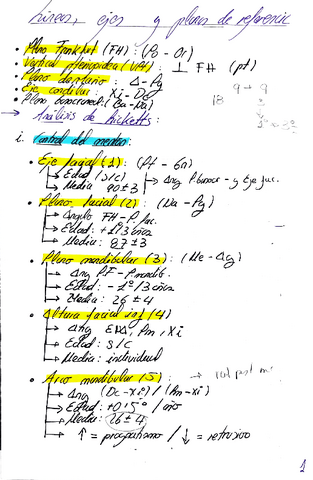 Líneas, ejes y planos de referencia
• Plano Frankfurt (FH) : (Po - Or)
• Vertical Pterigoidea (VPt) : ⊥ FH (pt)
• Plano dentario : A - Pg
• Eje condilar : Xi - Dc
• Plano basocraneal : (Ba - Na)
9 → 9
18
→ Análisis de Ricketts :
i. Control del mentón :
• Eje facial (1) : (Pt - Gn)
→ Edad : S/C → Ang P.basocr - y Eje fac.
→ Media 90 ± 3
• Plano facial (2) : (Na - Pg)
→ Angulo FH - P. fac.
→ Edad : +1º 3 años
→ Media : 87 ± 3
• Plano mandibular (3) : (Me - Ag)
→ Ang PF - P mandib.
→ Edad : - 1º / 3 años
→ Media : 26 ± 4
• Altura facial inf (4)
→ Ang ENA, Pm, Xi
→ Edad : S/C
→ Media : individual
• Arco mandibular (5) :
→ Ang (Dc - Xi) / (Pm - Xi)
→ Edad : +0'5º / año
→ Media : 26 ± 4
→ ↑ = prognatismo / ↓ = retrusivo
1